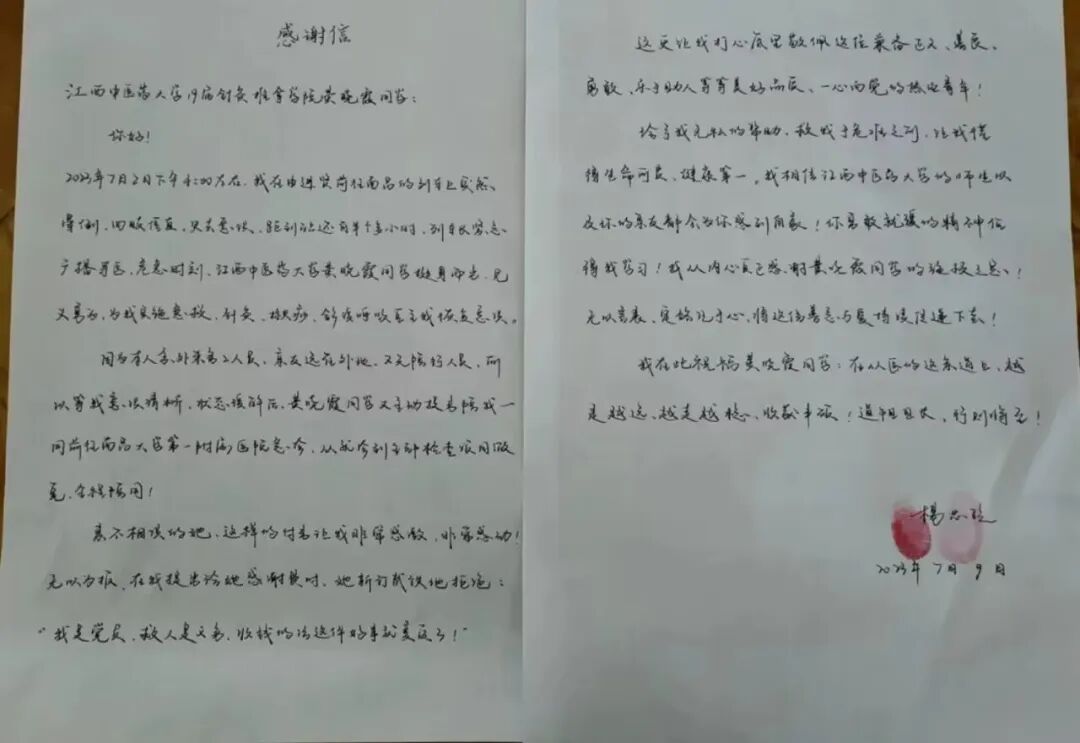 感谢信
江西中医药大学19届针灸推拿学院黄晓霞同学：
你好！
2023年7月2日下午4:00左右，我在由进贤前往南昌的列车上突然
晕倒，四肢僵直，失去意识，距到站还有半个多小时，列车长紧急
广播寻医，危急时刻，江西中医药大学黄晓霞同学挺身而出，见
义勇为，为我实施急救，针灸、按摩、舒缓呼吸直至我恢复意识。
因为有人意外案第2人员，亲友远在外地，又无陪行人员，所
以等我意识清晰，状态缓解后，黄晓霞同学又主动提出陪我一
同前往南昌大学第一附属医院急诊，从就诊到全部检查项目做
完，全程陪同！
素不相识的她，这样的付出让我非常感激，非常感动！
无以为报，在我提出给她感谢费时，她斩钉截铁地拒绝：
“我是党员，救人是义务，收钱的话这件好事就变质了！”
这更让我打心底里敬佩这位兼备正义、善良、
勇敢、乐于助人等等美好品质、一心向党的热血青年！
给予我无私的帮助，救我于危难之间，让我懂
得生命可贵、健康第一。我相信江西中医药大学的师生以
及你的亲友都会为你感到自豪！你勇敢救援的精神值
得我学习！我从内心真正感谢黄晓霞同学的施援之恩！
无以言表，定铭记于心，将这份善意与爱持续传递下去！
我在此祝福黄晓霞同学：在从医的这条道上，越
走越远、越走越稳、收获丰硕！道阻且长，行则将至！
杨
2023年7月9日